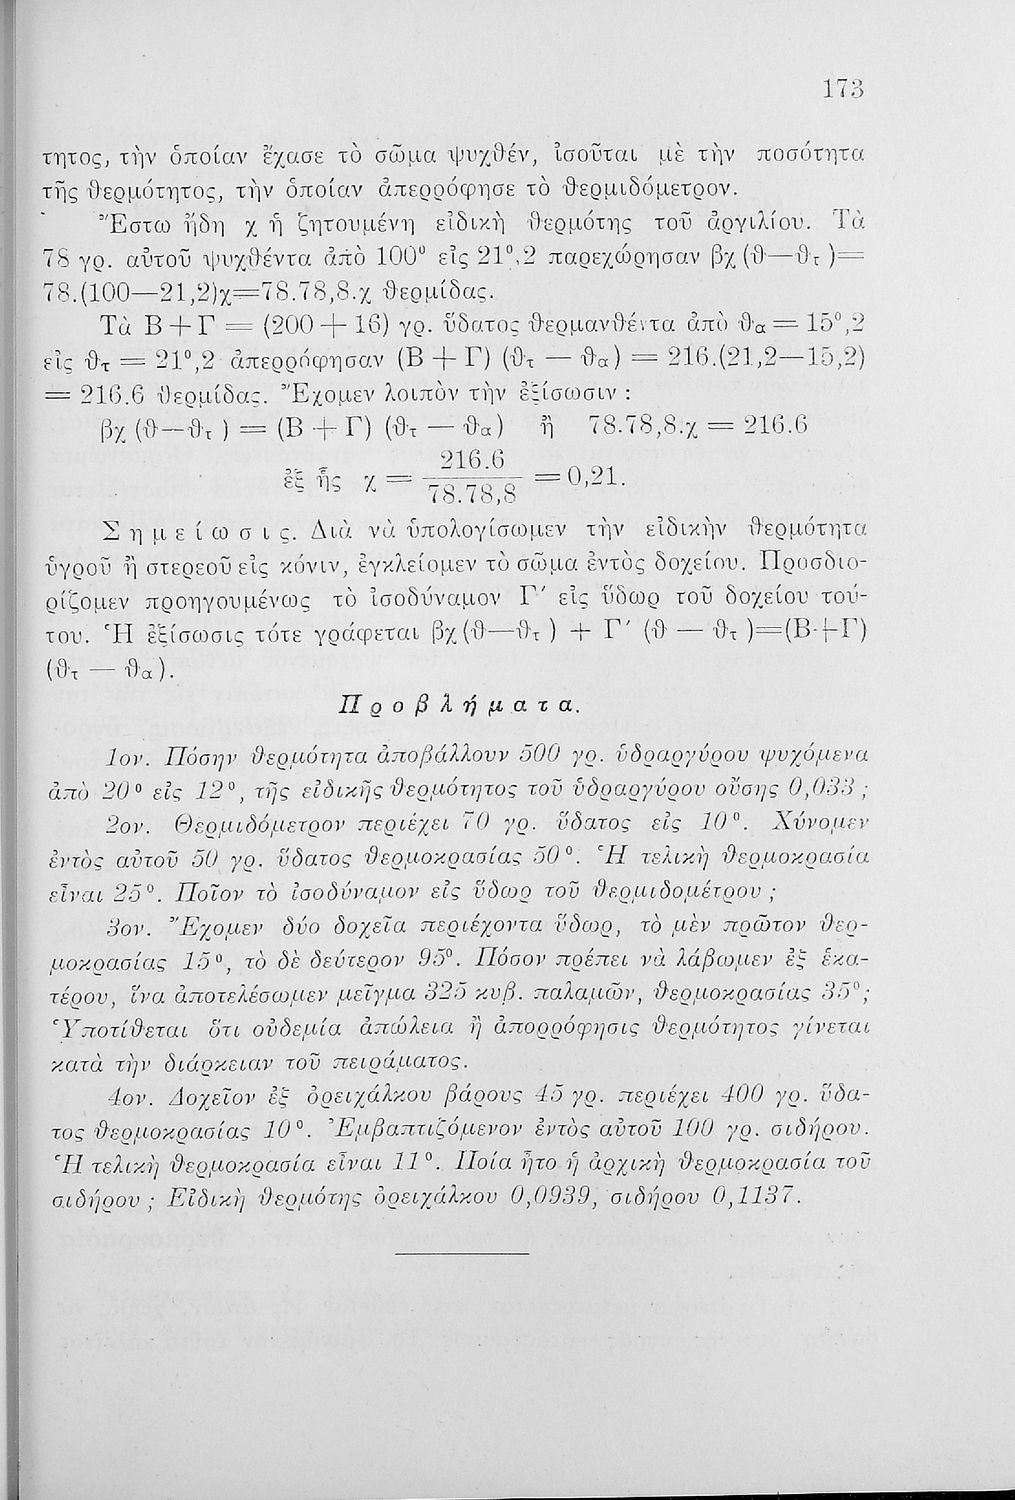 173
τητος, τὴν ὁποίαν ἔχασε τὸ σῶμα ψυχθέν, ἰσοῦται μὲ τὴν ποσότητα
τῆς θερμότητος, τὴν ὁποίαν ἀπερρόφησε τὸ θερμιδόμετρον.
Ἔστω ἤδη χ ἡ ζητουμένη εἰδικὴ θερμότης τοῦ ἀργιλίου. Τὰ
78 γρ. αὐτοῦ ψυχθέντα ἀπὸ 100⁰ εἰς 21⁰,2 παρεχώρησαν βχ(θ—θτ)=
78.(100—21,2)χ=78.78,8.χ θερμίδας.
Τὰ Β+Γ = (200+16) γρ. ὕδατος θερμανθέντα ἀπὸ θα = 15⁰,2
εἰς θτ = 21⁰,2 ἀπερρόφησαν (Β + Γ) (θτ — θα) = 216.(21,2—15,2)
= 216.6 θερμίδας. Ἔχομεν λοιπὸν τὴν ἐξίσωσιν :
βχ (θ—θτ ) = (Β + Γ) (θτ — θα) ἢ 78.78,8.χ = 216.6
ἐξ ἧς χ = 216.6 / 78.78,8 = 0,21.
Σημείωσις. Διὰ νὰ ὑπολογίσωμεν τὴν εἰδικὴν θερμότητα
ὑγροῦ ἢ στερεοῦ εἰς κόνιν, ἐγκλείομεν τὸ σῶμα ἐντὸς δοχείου. Προσδιο-
ρίζομεν προηγουμένως τὸ ἰσοδύναμον Γ′ εἰς ὕδωρ τοῦ δοχείου τού-
του. Ἡ ἐξίσωσις τότε γράφεται βχ(θ—θτ ) + Γ′ (θ — θτ )=(Β+Γ)
(θτ — θα).
Προβλήματα.
1ον. Πόσην θερμότητα ἀποβάλλουν 500 γρ. ὑδραργύρου ψυχόμενα
ἀπὸ 20⁰ εἰς 12⁰, τῆς εἰδικῆς θερμότητος τοῦ ὑδραργύρου οὔσης 0,033 ;
2ον. Θερμιδόμετρον περιέχει 70 γρ. ὕδατος εἰς 10⁰. Χύνομεν
ἐντὸς αὐτοῦ 50 γρ. ὕδατος θερμοκρασίας 50⁰. Ἡ τελικὴ θερμοκρασία
εἶναι 25⁰. Ποῖον τὸ ἰσοδύναμον εἰς ὕδωρ τοῦ θερμιδομέτρου ;
3ον. Ἔχομεν δύο δοχεῖα περιέχοντα ὕδωρ, τὸ μὲν πρῶτον θερ-
μοκρασίας 15⁰, τὸ δὲ δεύτερον 95⁰. Πόσον πρέπει νὰ λάβωμεν ἐξ ἑκα-
τέρου, ἵνα ἀποτελέσωμεν μεῖγμα 325 κυβ. παλαμῶν, θερμοκρασίας 35⁰;
Ὑποτίθεται ὅτι οὐδεμία ἀπώλεια ἢ ἀπορρόφησις θερμότητος γίνεται
κατὰ τὴν διάρκειαν τοῦ πειράματος.
4ον. Δοχεῖον ἐξ ὀρειχάλκου βάρους 45 γρ. περιέχει 400 γρ. ὕδα-
τος θερμοκρασίας 10⁰. Ἐμβαπτιζόμενον ἐντὸς αὐτοῦ 100 γρ. σιδήρου.
Ἡ τελικὴ θερμοκρασία εἶναι 11⁰. Ποία ἦτο ἡ ἀρχικὴ θερμοκρασία τοῦ
σιδήρου ; Εἰδικὴ θερμότης ὀρειχάλκου 0,0939, σιδήρου 0,1137.